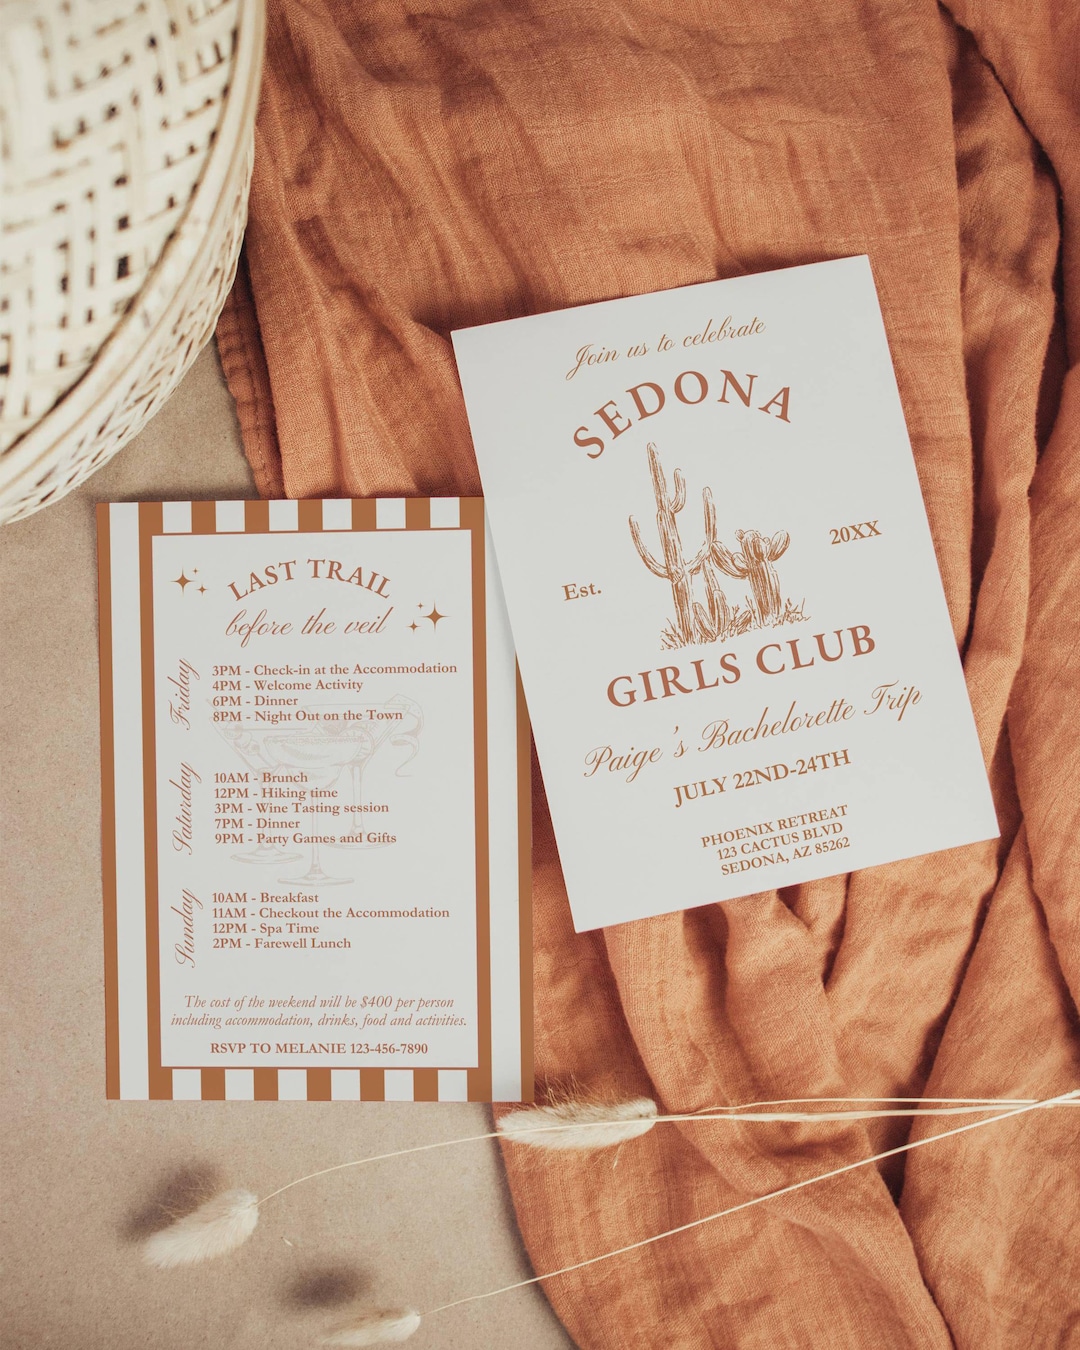 LAST TRAIL
before the veil
Friday
3PM - Check-in at the Accommodation
4PM - Welcome Activity
6PM - Dinner
8PM - Night Out on the Town
Saturday
10AM - Brunch
12PM - Hiking time
3PM - Wine Tasting session
7PM - Dinner
9PM - Party Games and Gifts
Sunday
10AM - Breakfast
11AM - Checkout the Accommodation
12PM - Spa Time
2PM - Farewell Lunch
The cost of the weekend will be $400 per person
including accommodation, drinks, food and activities.
RSVP TO MELANIE 123-456-7890
Join us to celebrate
SEDONA
Est.
20XX
GIRLS CLUB
Paige's Bachelorette Trip
JULY 22ND-24TH
PHOENIX RETREAT
123 CACTUS BLVD
SEDONA, AZ 85262